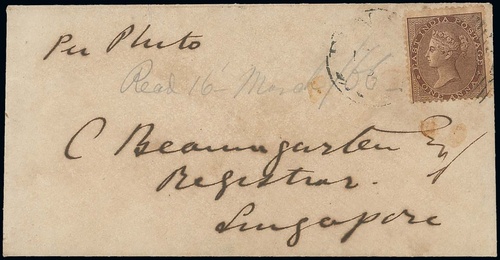 Per Pluto
Recd 16 March /66
EAST INDIA POSTAGE
ONE ANNA
C Beaumgarten Esq
Registrar.
Singapore